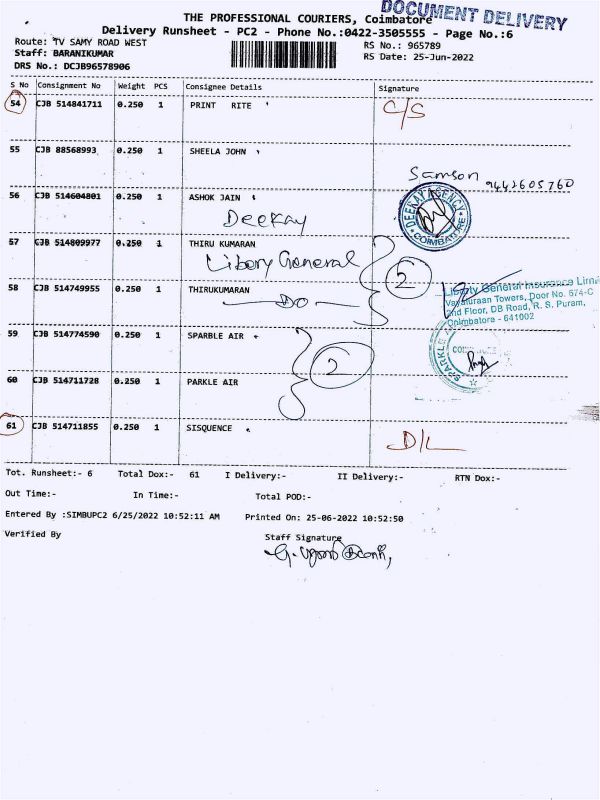 DOCUMENT DELIVERY
THE PROFESSIONAL COURIERS, Coimbatore
Delivery Runsheet - PC2 - Phone No.:0422-3505555 - Page No.:6
Route: TV SAMY ROAD WEST RS No.: 965789
Staff: BARANIKUMAR RS Date: 25-Jun-2022
DRS No.: DCJB96578906
S No Consignment No Weight PCS Consignee Details Signature
54 CJB 514841711 0.250 1 PRINT RITE C/S
55 CJB 88568993 0.250 1 SHEELA JOHN
Samson 9442605760
56 CJB 514604801 0.250 1 ASHOK JAIN
Deekay
DEEKAY AGENCY COIMBATORE
57 CJB 514809977 0.250 1 THIRU KUMARAN
Libery General 2
58 CJB 514749955 0.250 1 THIRUKUMARAN
DO
Liberty General Insurance Limi
Towers, Door No. 574-C
2nd Floor, DB Road, R. S. Puram,
Coimbatore - 641002
59 CJB 514774590 0.250 1 SPARBLE AIR
2
SPARKLE
60 CJB 514711728 0.250 1 PARKLE AIR
61 CJB 514711855 0.250 1 SISQUENCE D/L
Tot. Runsheet:- 6 Total Dox:- 61 I Delivery:- II Delivery:- RTN Dox:-
Out Time:- In Time:- Total POD:-
Entered By :SIMBUPC2 6/25/2022 10:52:11 AM Printed On: 25-06-2022 10:52:50
Verified By Staff Signature